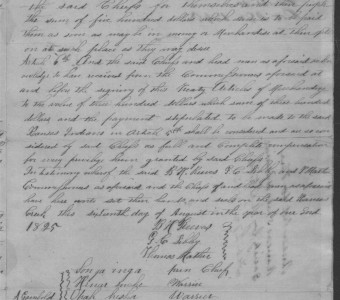 the said Chiefs for themselves and their people
the sum of five hundred dollars which sum is to be paid
them as soon as may be in money or Merchandise at their option
at such place as they may desire
Article 6th And the said Chiefs and head men as aforesaid acknow
ledge to have received from the Commissioners aforesaid at
and before the signing of this Treaty Articles of Merchandise
to the value of three hundred dollars which sum of three hundred
dollars and the payment stipulated to be made to the said
Kansas Indians in Article 5th shall be considered and are so con
sidered by said Chiefs as full and Complete compensation
for every privilege herein granted by said Chiefs
In testimony whereof the said B H Reeves G C Sibley and T Mather
Commissioners as aforesaid and the Chiefs and head men as aforesaid
have hereunto set their hands and seals on the said Kansas
Creek, this sixteenth day of August in the year of our Lord
1825
B H Reeves
G C Sibley
Thomas Mather
Chief
Warrior